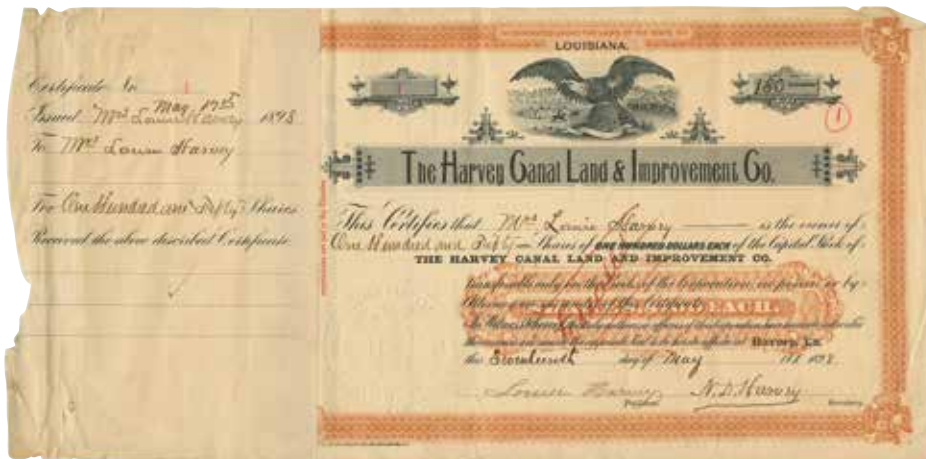 Certificate No 1
Issued May 17th 1898
Mrs Louise Harvey
To Mrs Louise Harvey
For One Hundred and Fifty Shares
Received the above described Certificate
LOUISIANA.
1
150
1
The Harvey Canal Land & Improvement Co.
This Certifies that Mrs Louise Harvey is the owner of
One Hundred and Fifty Shares of ONE HUNDRED DOLLARS EACH of the Capital Stock of
THE HARVEY CANAL LAND AND IMPROVEMENT CO.
transferable only on the books of the Corporation, in person or by
Attorney on surrender of this Certificate.
EACH.
In Witness Whereof
Harvey, La.
this Seventeenth day of May 1898
Louise Harvey N. D. Harvey
President Secretary